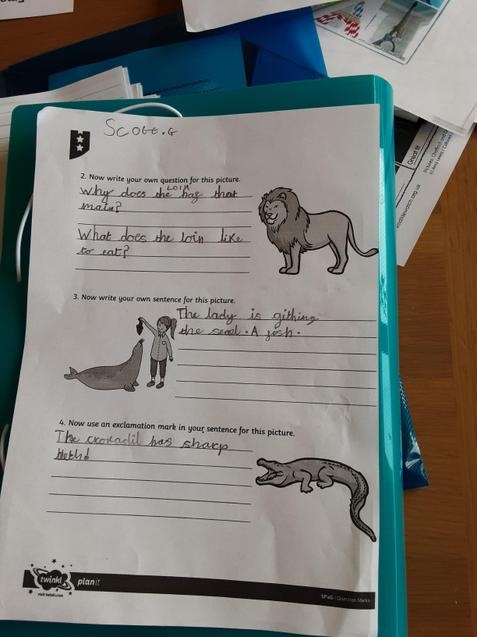 Scott.G
2. Now write your own question for this picture.
loin
Why does the has that
main?
What does the loin like
to eat?
3. Now write your own sentence for this picture.
The lady is githing
the seal. A fish.
4. Now use an exclamation mark in your sentence for this picture.
The crokadil has sharp
teeth!
twinkl planit
visit twinkl.com